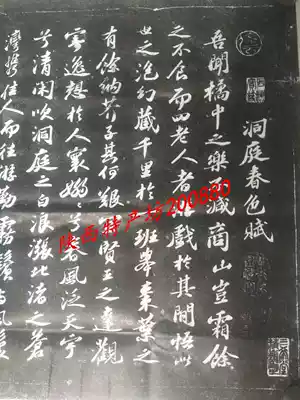 洞庭春色賦
吾聞橘中之樂不減商山豈霜餘
之不食而四老人者游戲於其間悟此
世之泡幻藏千里於一班舉棗葉之
有餘納芥子其何艱宜賢王之達觀
寄逸想於人寰嫋嫋兮春風泛天宇
兮清閑吹洞庭之白浪漲北渚之蒼
灣攜佳人而往遊勤霧鬢與風鬟
陕西特产站200680